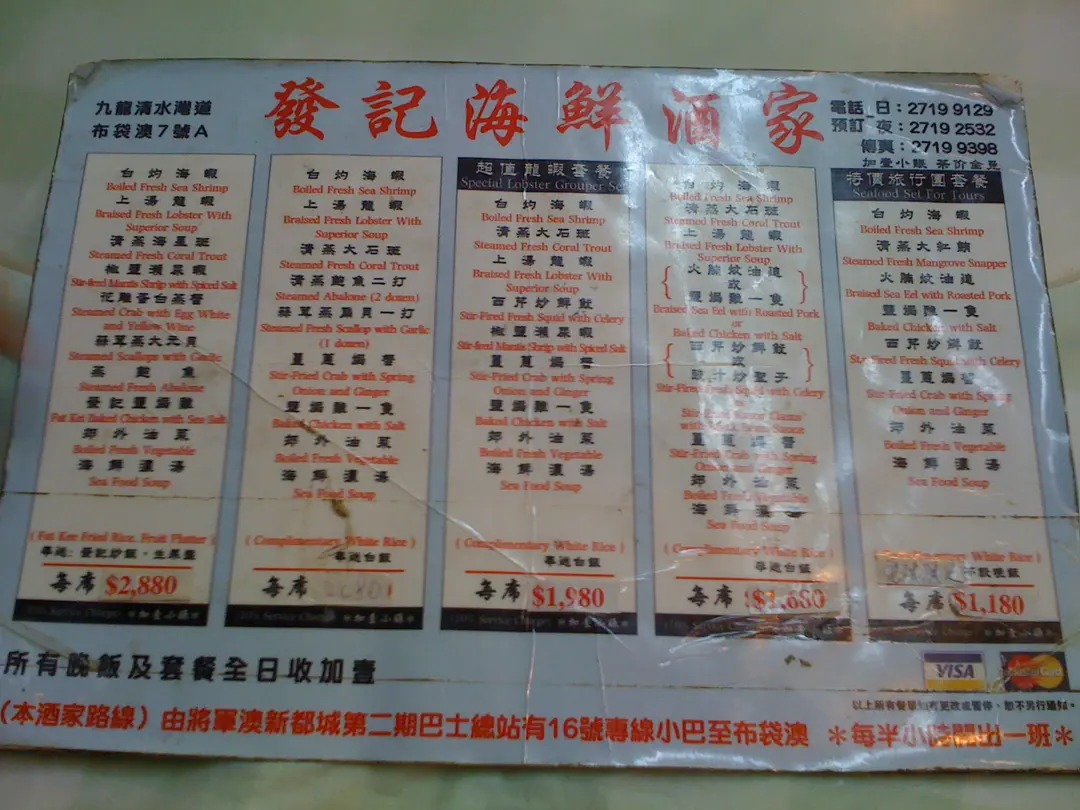 九龍清水灣道
布袋澳7號A
發記海鮮酒家
電話 日：2719 9129
預訂 夜：2719 2532
傳真：2719 9398
加壹小賬 茶价全免
白灼海蝦
Boiled Fresh Sea Shrimp
上湯龍蝦
Braised Fresh Lobster With
Superior Soup
清蒸海星斑
Steamed Fresh Coral Trout
椒鹽瀨尿蝦
Stir-fired Mantis Shrip with Spiced Salt
花雕蛋白蒸蟹
Steamed Crab with Egg White
and Yellow Wine
蒜茸蒸大元貝
Steamed Scallops with Garlic
蒸鮑魚
Steamed Fresh Abalone
發記鹽焗雞
Fat Kei Baked Chicken with Sea Salt
郊外油菜
Boiled Fresh Vegetable
海鮮濃湯
Sea Food Soup
( Fat Kee Fried Rice, Fruit Platter )
專送：發記炒飯，生果盤
每席 $2,880
白灼海蝦
Boiled Fresh Sea Shrimp
上湯龍蝦
Braised Fresh Lobster With
Superior Soup
清蒸大石斑
Steamed Fresh Coral Trout
清蒸鮑魚二打
Steamed Abalone (2 dozen)
蒜茸蒸扇貝一打
Steamed Fresh Scallop with Garlic
(1 dozen)
薑蔥焗蟹
Stir-Fried Crab with Spring
Onion and Ginger
鹽焗雞一隻
Baked Chicken with Salt
郊外油菜
Boiled Fresh Vegetable
海鮮濃湯
Sea Food Soup
( Complimentary White Rice )
專送白飯
每席
20% Service Charge
加壹小賬
超值龍蝦套餐
Special Lobster Grouper Set
白灼海蝦
Boiled Fresh Sea Shrimp
清蒸大石斑
Steamed Fresh Coral Trout
上湯龍蝦
Braised Fresh Lobster With
Superior Soup
西芹炒鮮魷
Stir-Fired Fresh Squid with Celery
椒鹽瀨尿蝦
Stir-fired Mantis Shrip with Spiced Salt
薑蔥焗蟹
Stir-Fried Crab with Spring
Onion and Ginger
鹽焗雞一隻
Baked Chicken with Salt
郊外油菜
Boiled Fresh Vegetable
海鮮濃湯
Sea Food Soup
( Complimentary White Rice )
專送白飯
每席 $1,980
加壹小賬
白灼海蝦
Boiled Fresh Sea Shrimp
清蒸大石斑
Steamed Fresh Coral Trout
上湯龍蝦
Braised Fresh Lobster With
Superior Soup
火腩炆油追
或
鹽焗雞一隻
Braised Sea Eel with Roasted Pork
or
Baked Chicken with Salt
西芹炒鮮魷
或
豉汁炒聖子
Stir-Fired Fresh Squid with Celery
or
Stir-Fried Razor Clams
with Black Bean Sauce
薑蔥焗蟹
Stir-Fried Crab with Spring
Onion and Ginger
郊外油菜
Boiled Fresh Vegetable
海鮮濃湯
Sea Food Soup
( Complimentary White Rice )
專送白飯
每席 $1,680
加壹小賬
特價旅行團套餐
Seafood Set For Tours
白灼海蝦
Boiled Fresh Sea Shrimp
清蒸大紅鮋
Steamed Fresh Mangrove Snapper
火腩炆油追
Braised Sea Eel with Roasted Pork
鹽焗雞一隻
Baked Chicken with Salt
西芹炒鮮魷
Stir-Fired Fresh Squid with Celery
薑蔥焗蟹
Stir-Fried Crab with Spring
Onion and Ginger
郊外油菜
Boiled Fresh Vegetable
海鮮濃湯
Sea Food Soup
( Complimentary White Rice )
每席 $1,180
加壹小賬
所有晚飯及套餐全日收加壹
VISA
MasterCard
以上所有餐單如有更改或暫停，恕不另行通知。
（本酒家路線）由將軍澳新都城第二期巴士總站有16號專線小巴至布袋澳 ＊每半小時開出一班＊